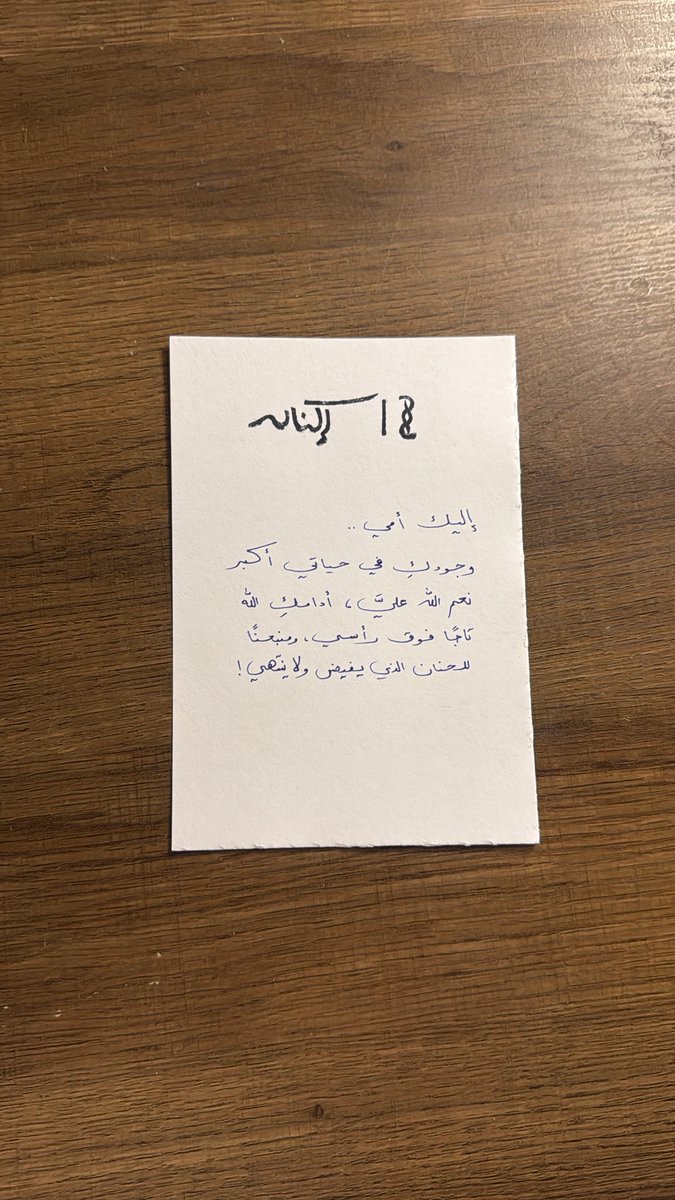 إليك أمي ..
وجودكِ في حياتي أكبر
نعم الله عليَّ، أدامكِ الله
تاجًا فوق رأسي، ومنبعًا
للحنان الذي يفيض ولا ينتهي!